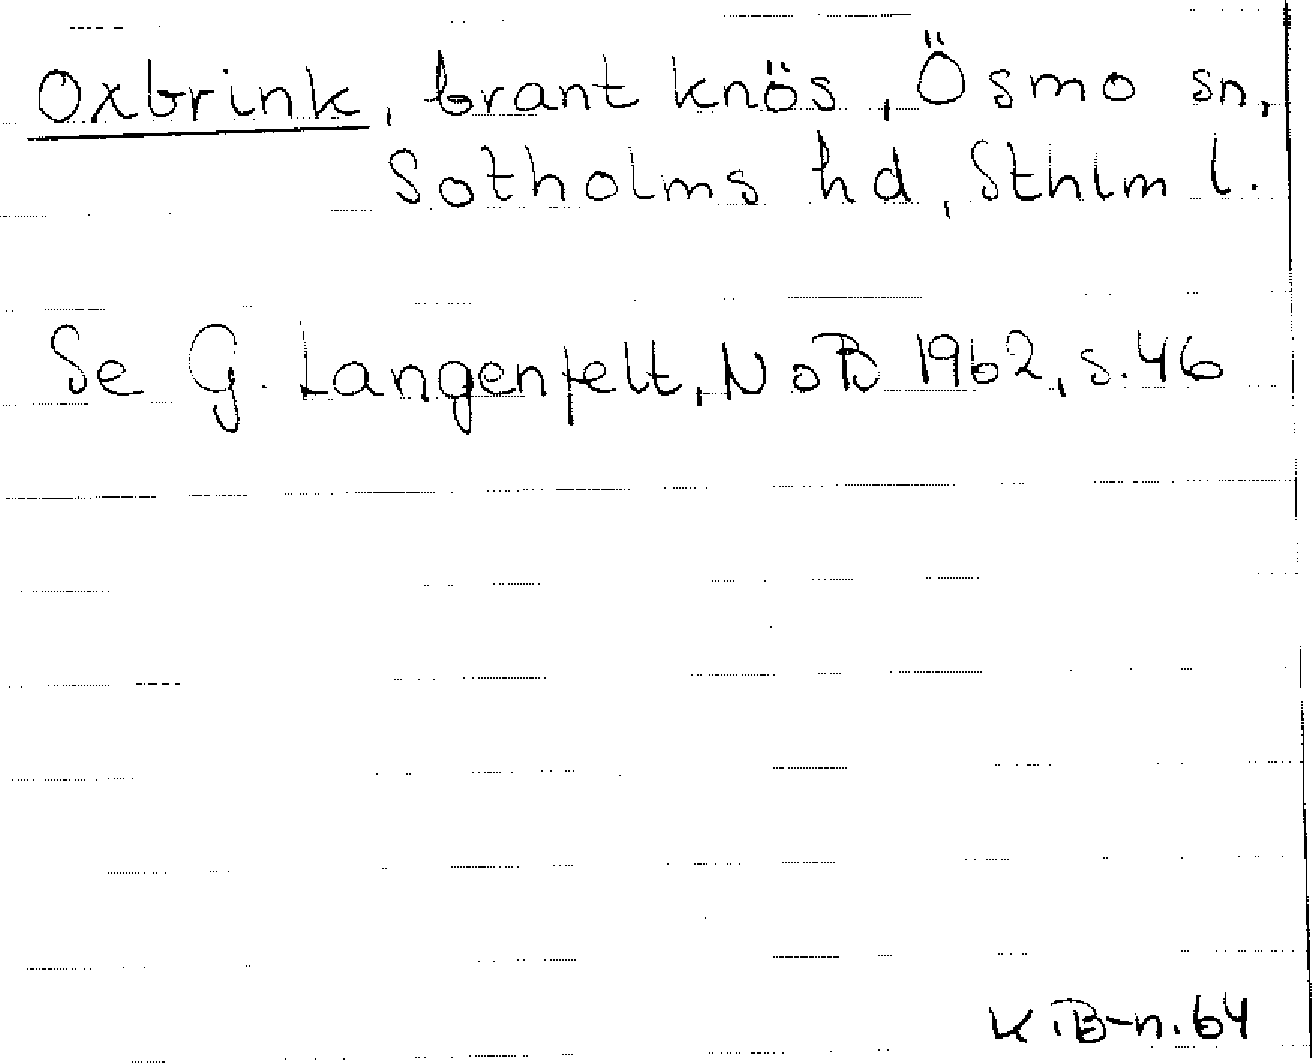 Oxbrink, brant knös, Ösmo sn,
Sotholms hd, Sthlm l.
Se G. Langenfelt, NoB 1962, s. 46
K.B-n. 64